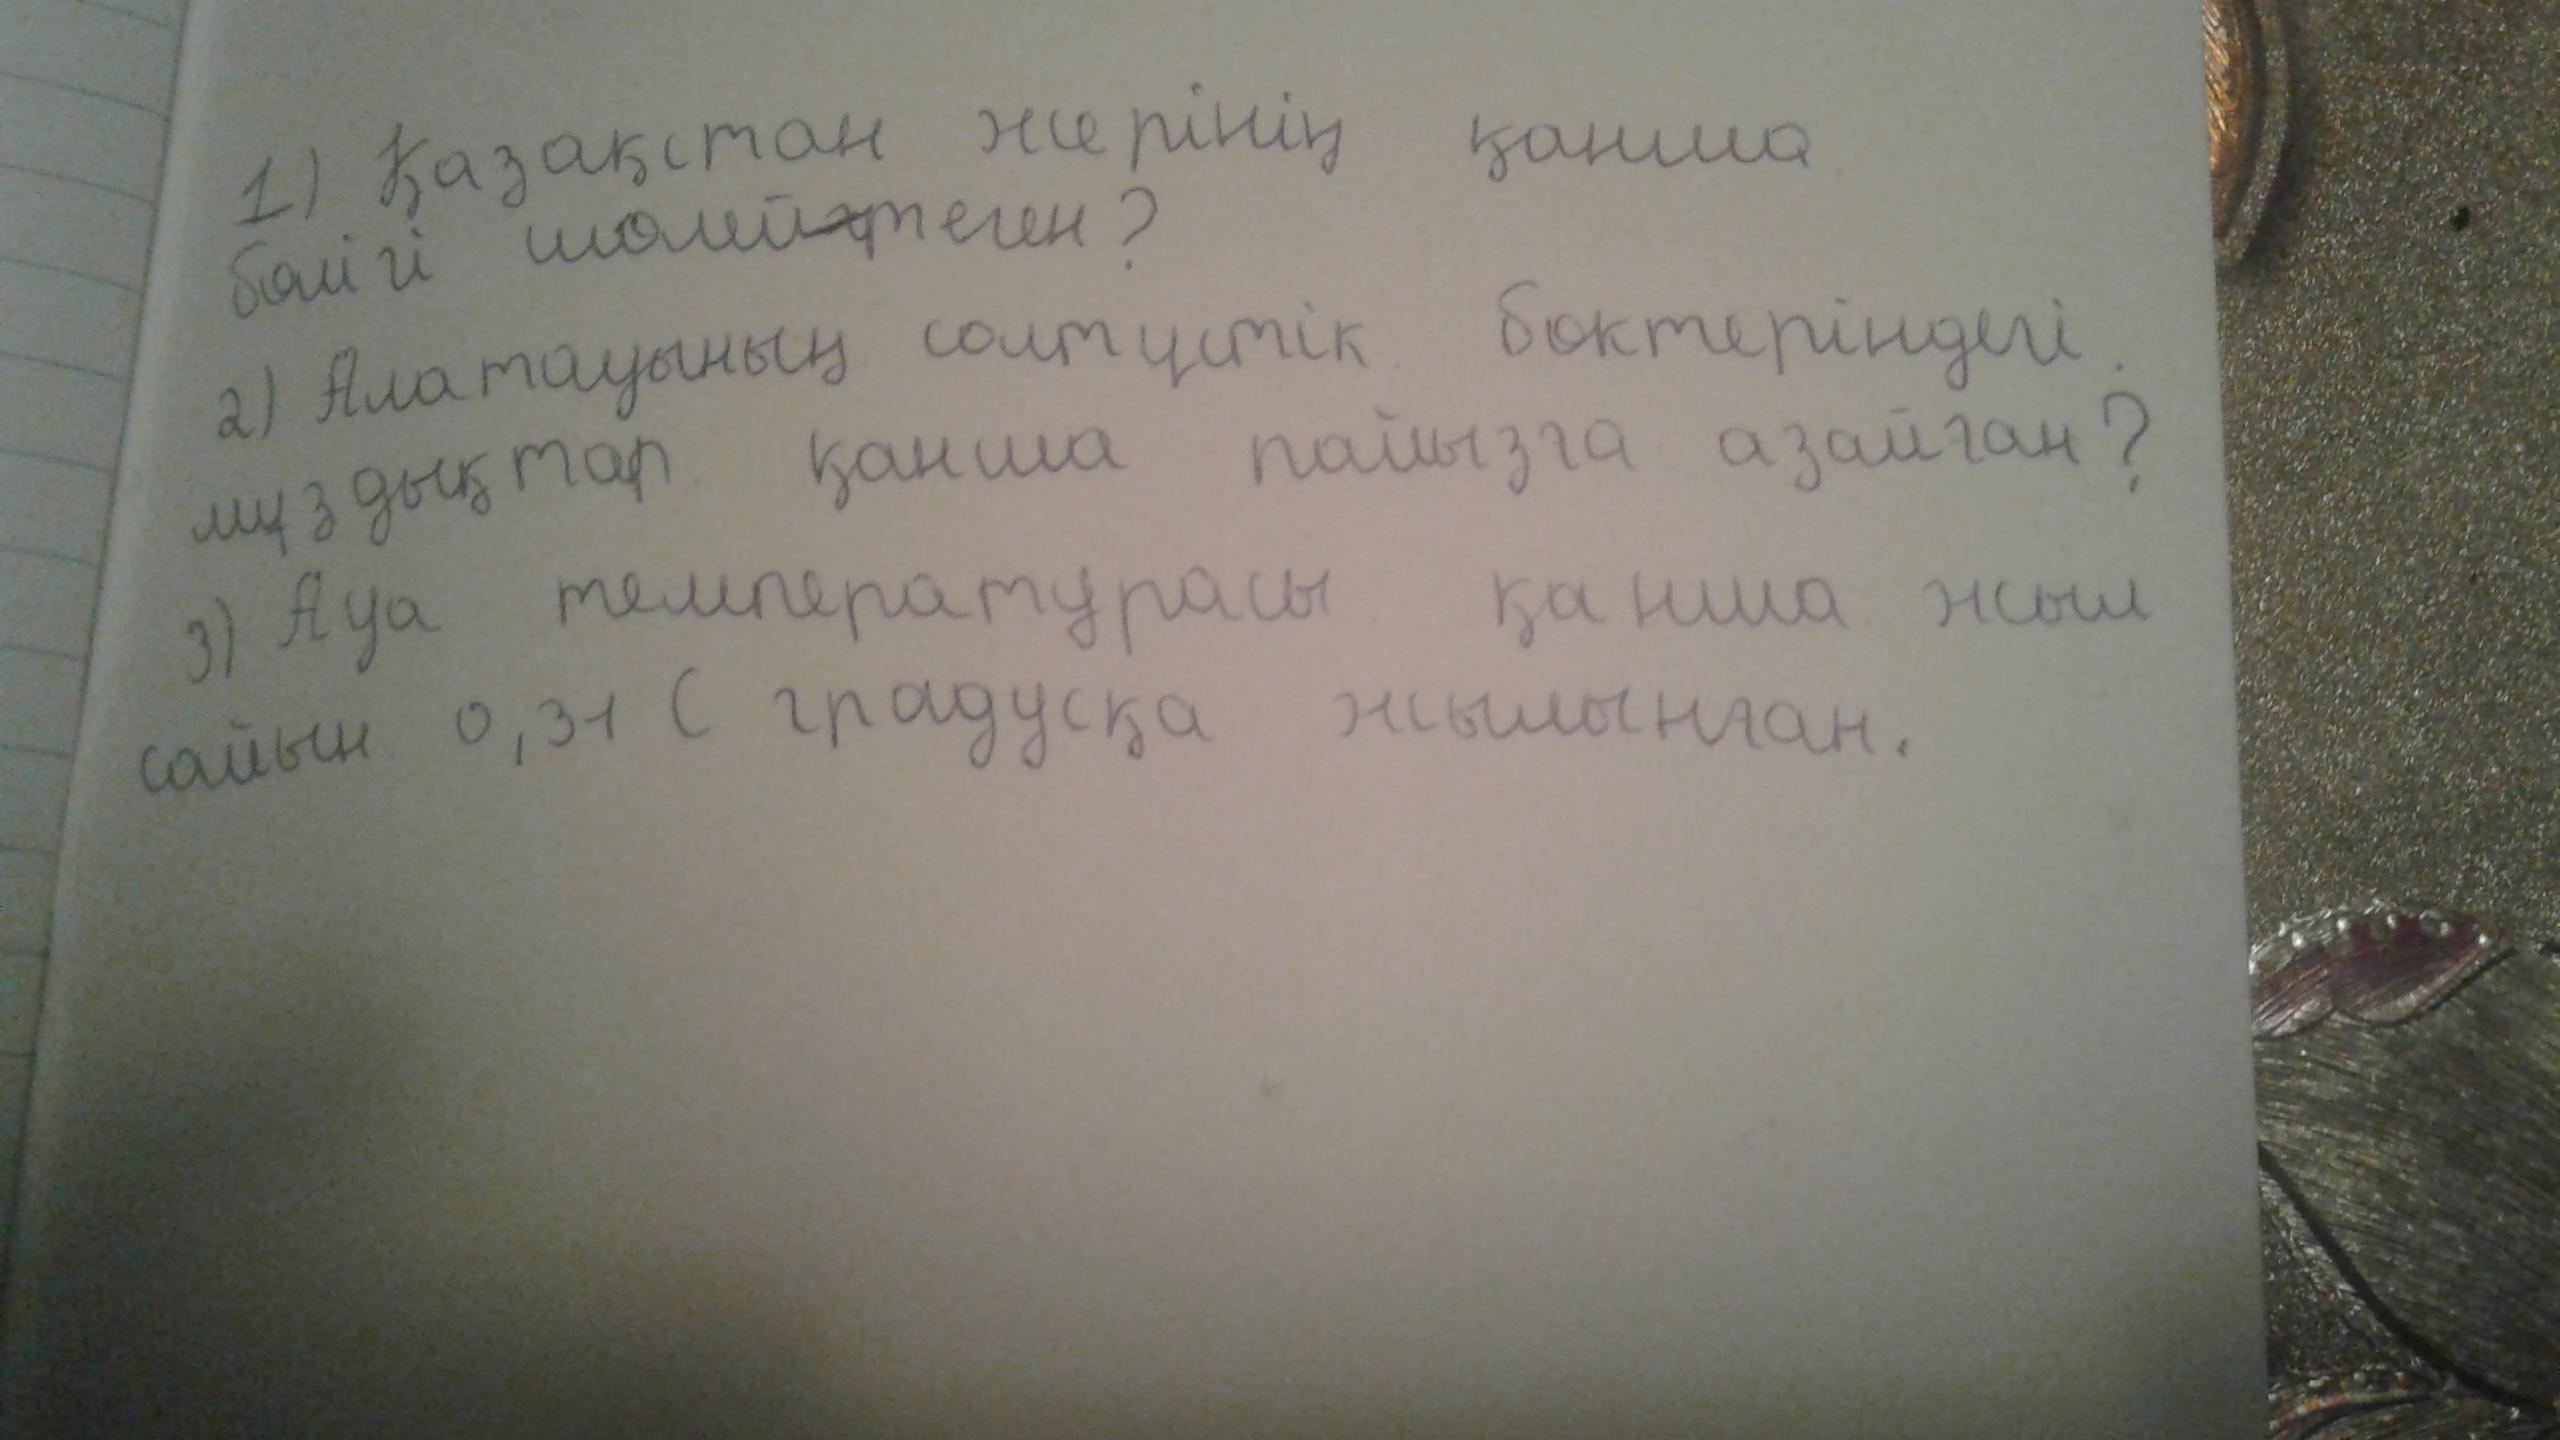 1) Қазақстан жерінің қанша
бөлігі шөлейттеген?
2) Алатауының солтүстік бөктеріндегі
мұздықтар қанша пайызға азайған?
3) Ауа температурасы қанша жыл
сайын 0,31 С градусқа жылынған.